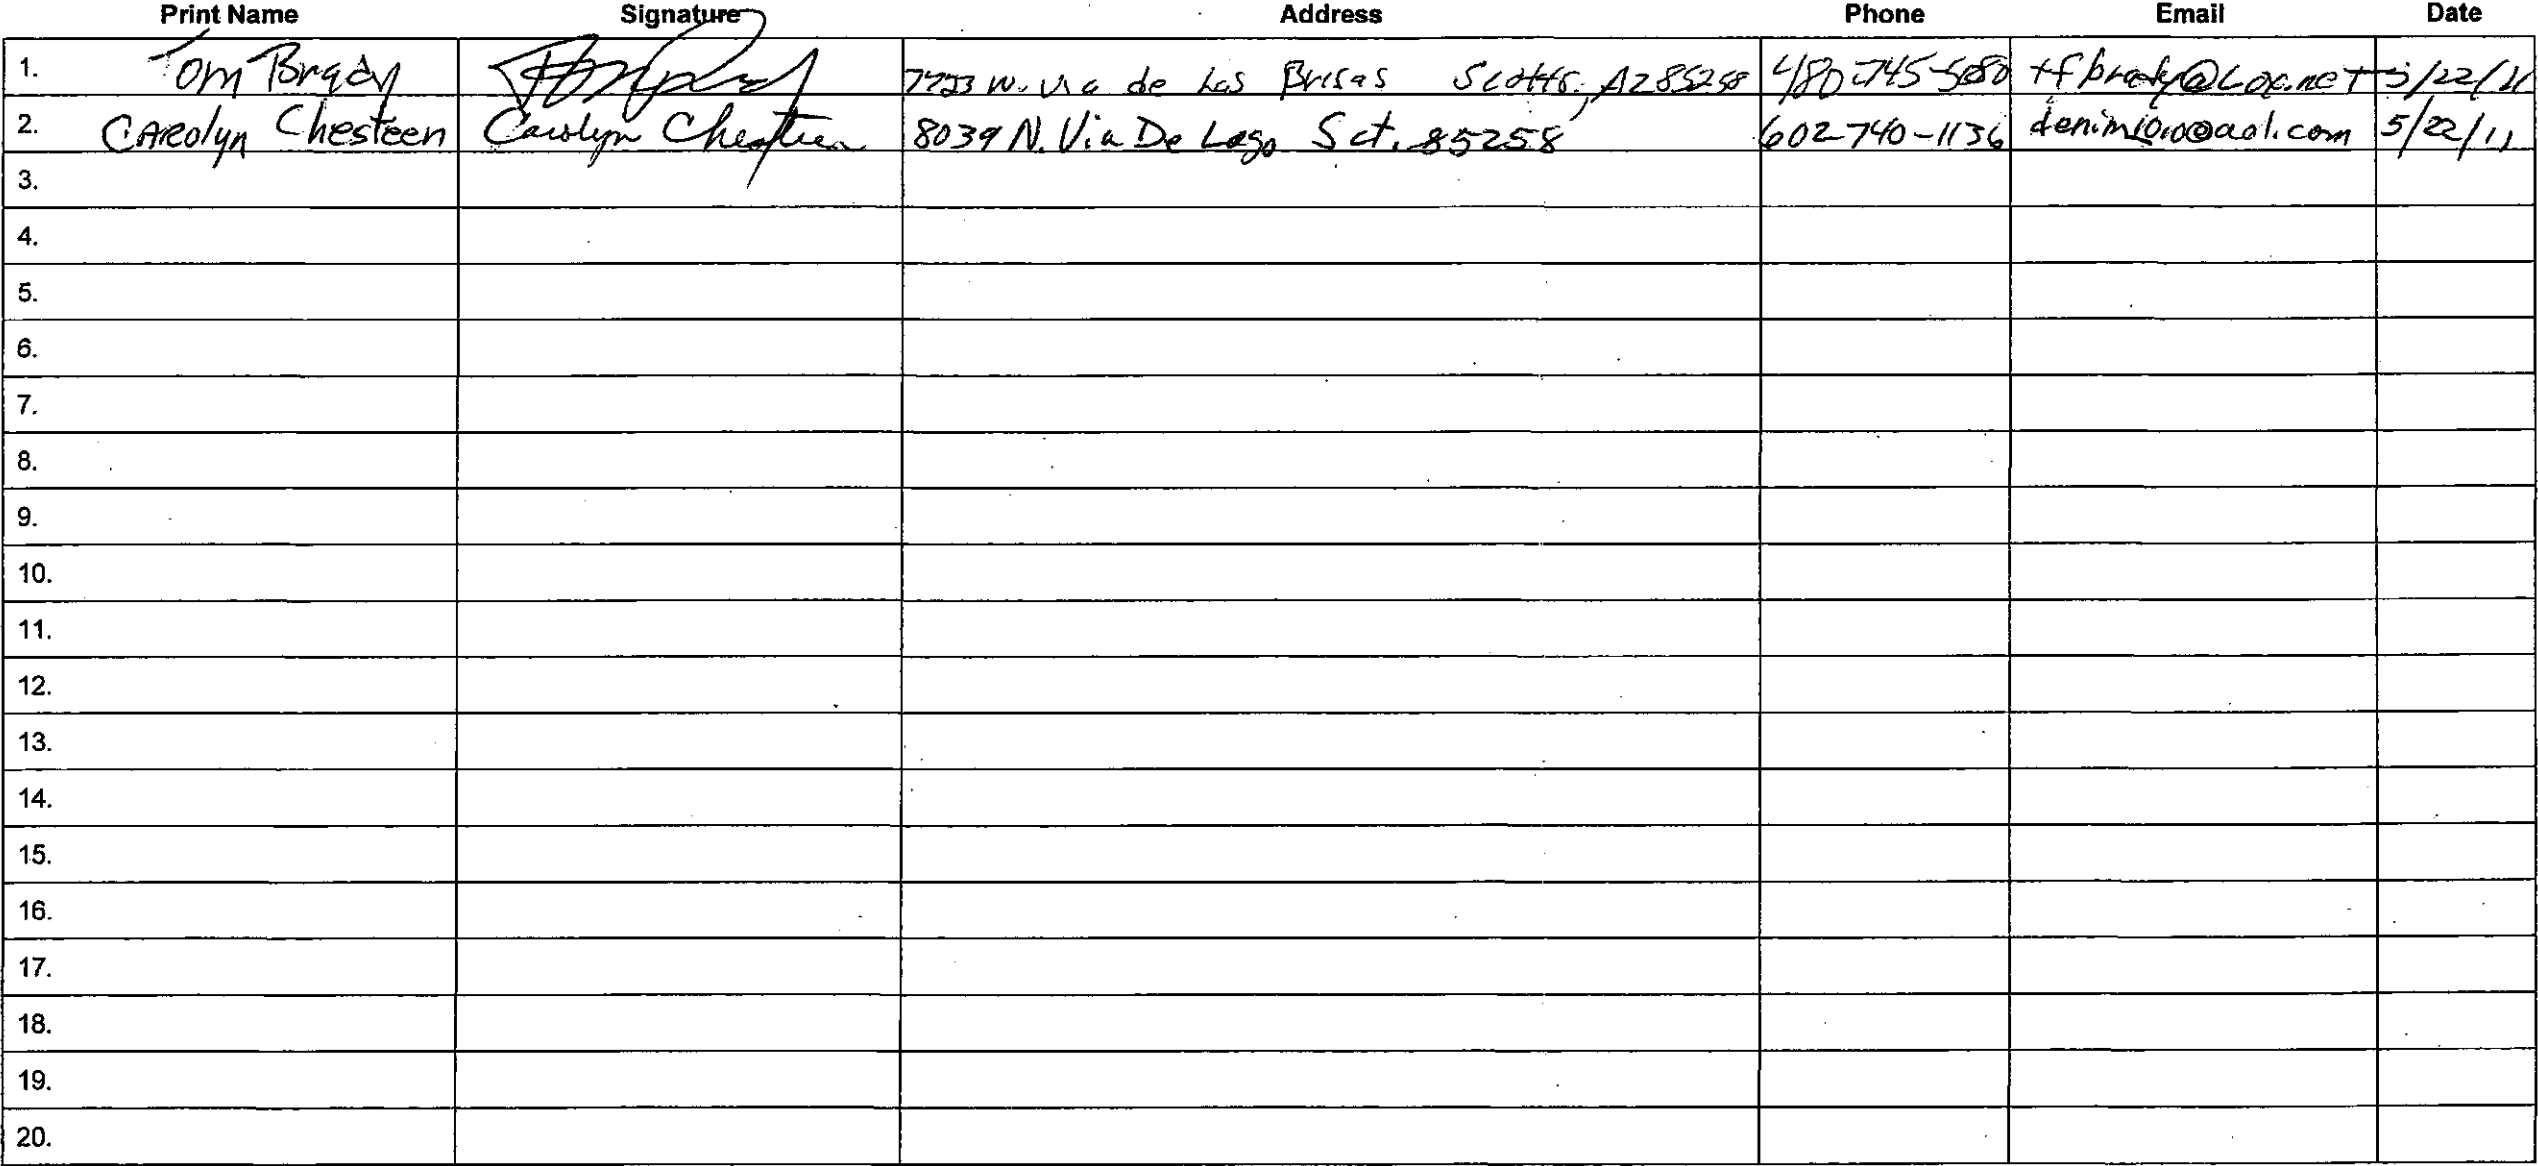 Print Name Signature Address Phone Email Date
1. Tom Brady de Las Brisas Scotts, AZ 85258 480-745-5080 tfbrady@cox.net 5/22/11
2. CARolyn Chesteen Carolyn Chesteen 8039 N. Via De Lago Sct. 85258 602-740-1136 denim1010@aol.com 5/22/11
3.
4.
5.
6.
7.
8.
9.
10.
11.
12.
13.
14.
15.
16.
17.
18.
19.
20.